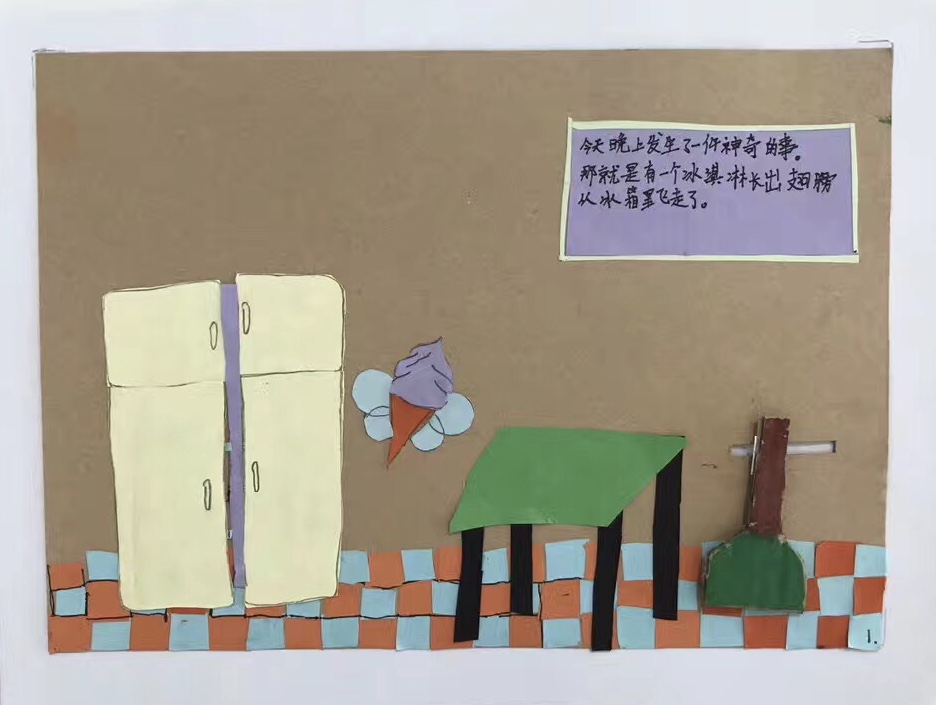 今天晚上发生了一件神奇的事。
那就是有一个冰淇淋长出翅膀
从冰箱里飞走了。
1.